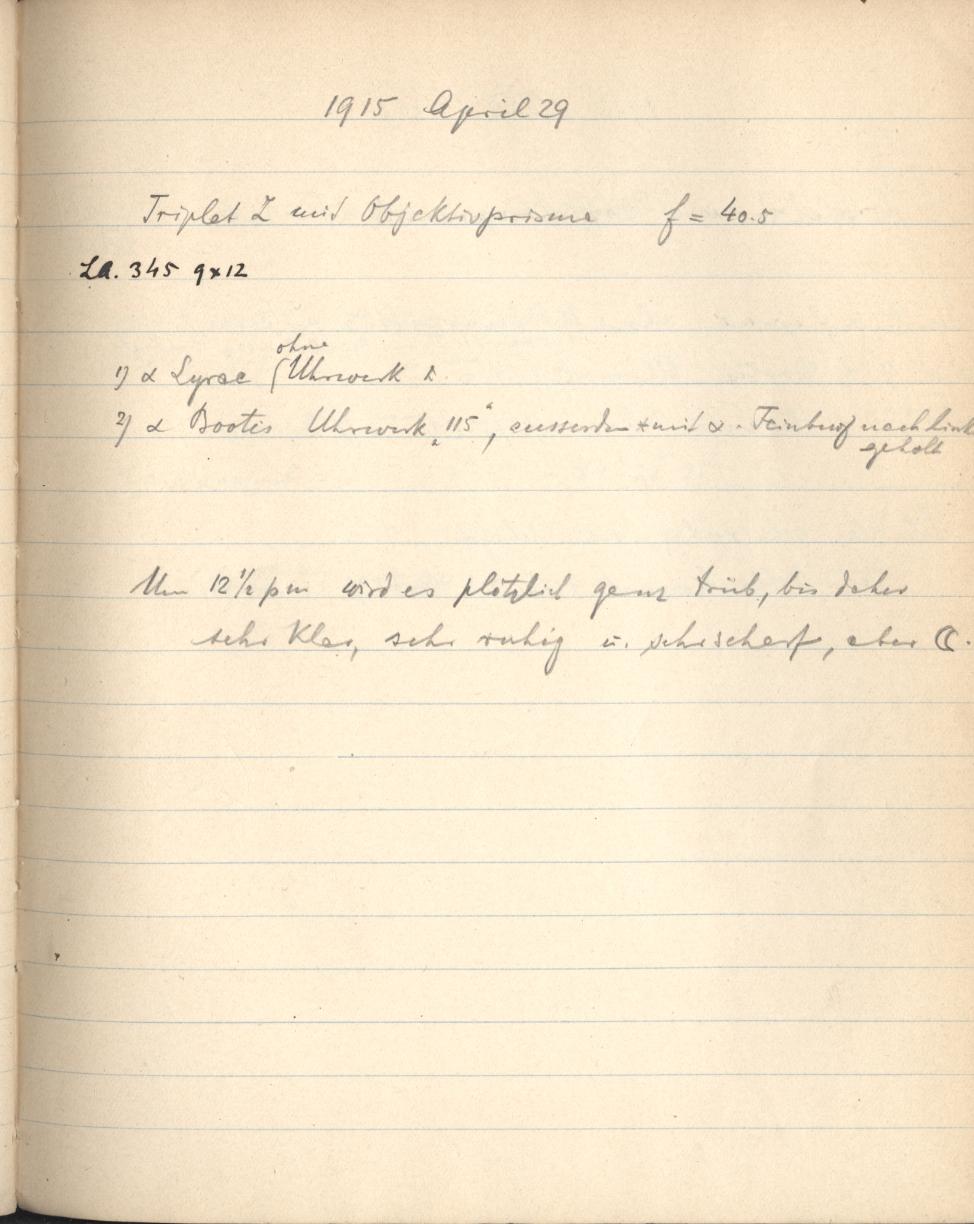 1915 April 29
Triplet Z mit Objektivprisma f = 40.5
LA. 345 9x12
1) α Lyrae ohne Uhrwerk
2) α Bootis Uhrwerk „115“, ausserdem * mit α - Feinbew. nach links
geholt
Um 12 1/2 pm wird es plötzlich ganz trüb, bis daher
sehr klar, sehr ruhig u. sehr scharf, aber ☾.